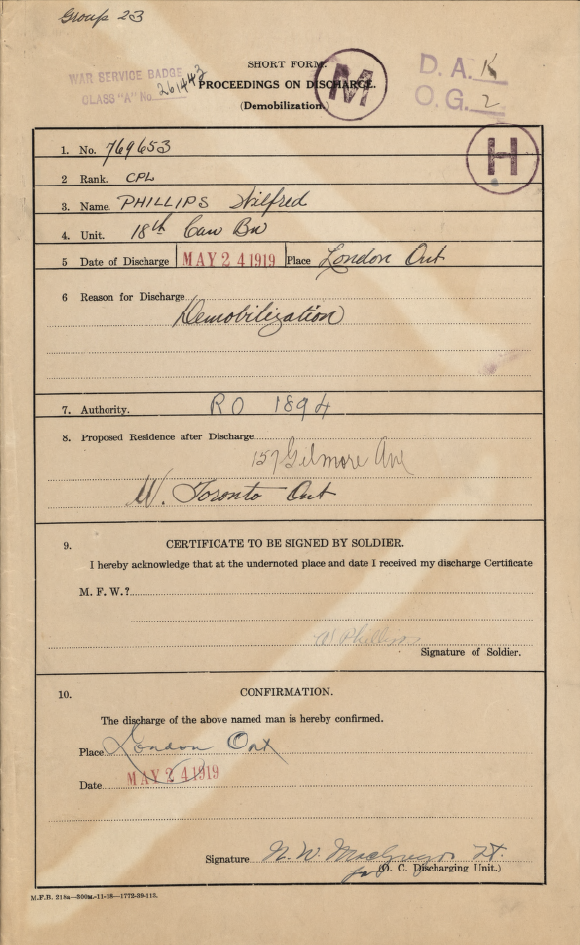 Group 23
SHORT FORM.
WAR SERVICE BADGE
CLASS "A" No. 261443
PROCEEDINGS ON DISCHARGE.
(Demobilization)
M
D. A. K
O. G. 2
H
1. No. 769653
2 Rank. CPL
3. Name PHILLIPS Wilfred
4. Unit. 18th Can Bn
5 Date of Discharge MAY 24 1919 Place London Ont
6 Reason for Discharge
Demobilization
7. Authority. RO 1894
8. Proposed Residence after Discharge
157 Gilmore Ave
W. Toronto Ont
9. CERTIFICATE TO BE SIGNED BY SOLDIER.
I hereby acknowledge that at the undernoted place and date I received my discharge Certificate
M. F. W.?
W Phillips
Signature of Soldier.
10. CONFIRMATION.
The discharge of the above named man is hereby confirmed.
Place London Ont
Date MAY 24 1919
Signature N. W. MacGregor Lt.
for (O. C. Discharging Unit.)
M.F.B. 218a—300M.-11-18—1772-39-113.